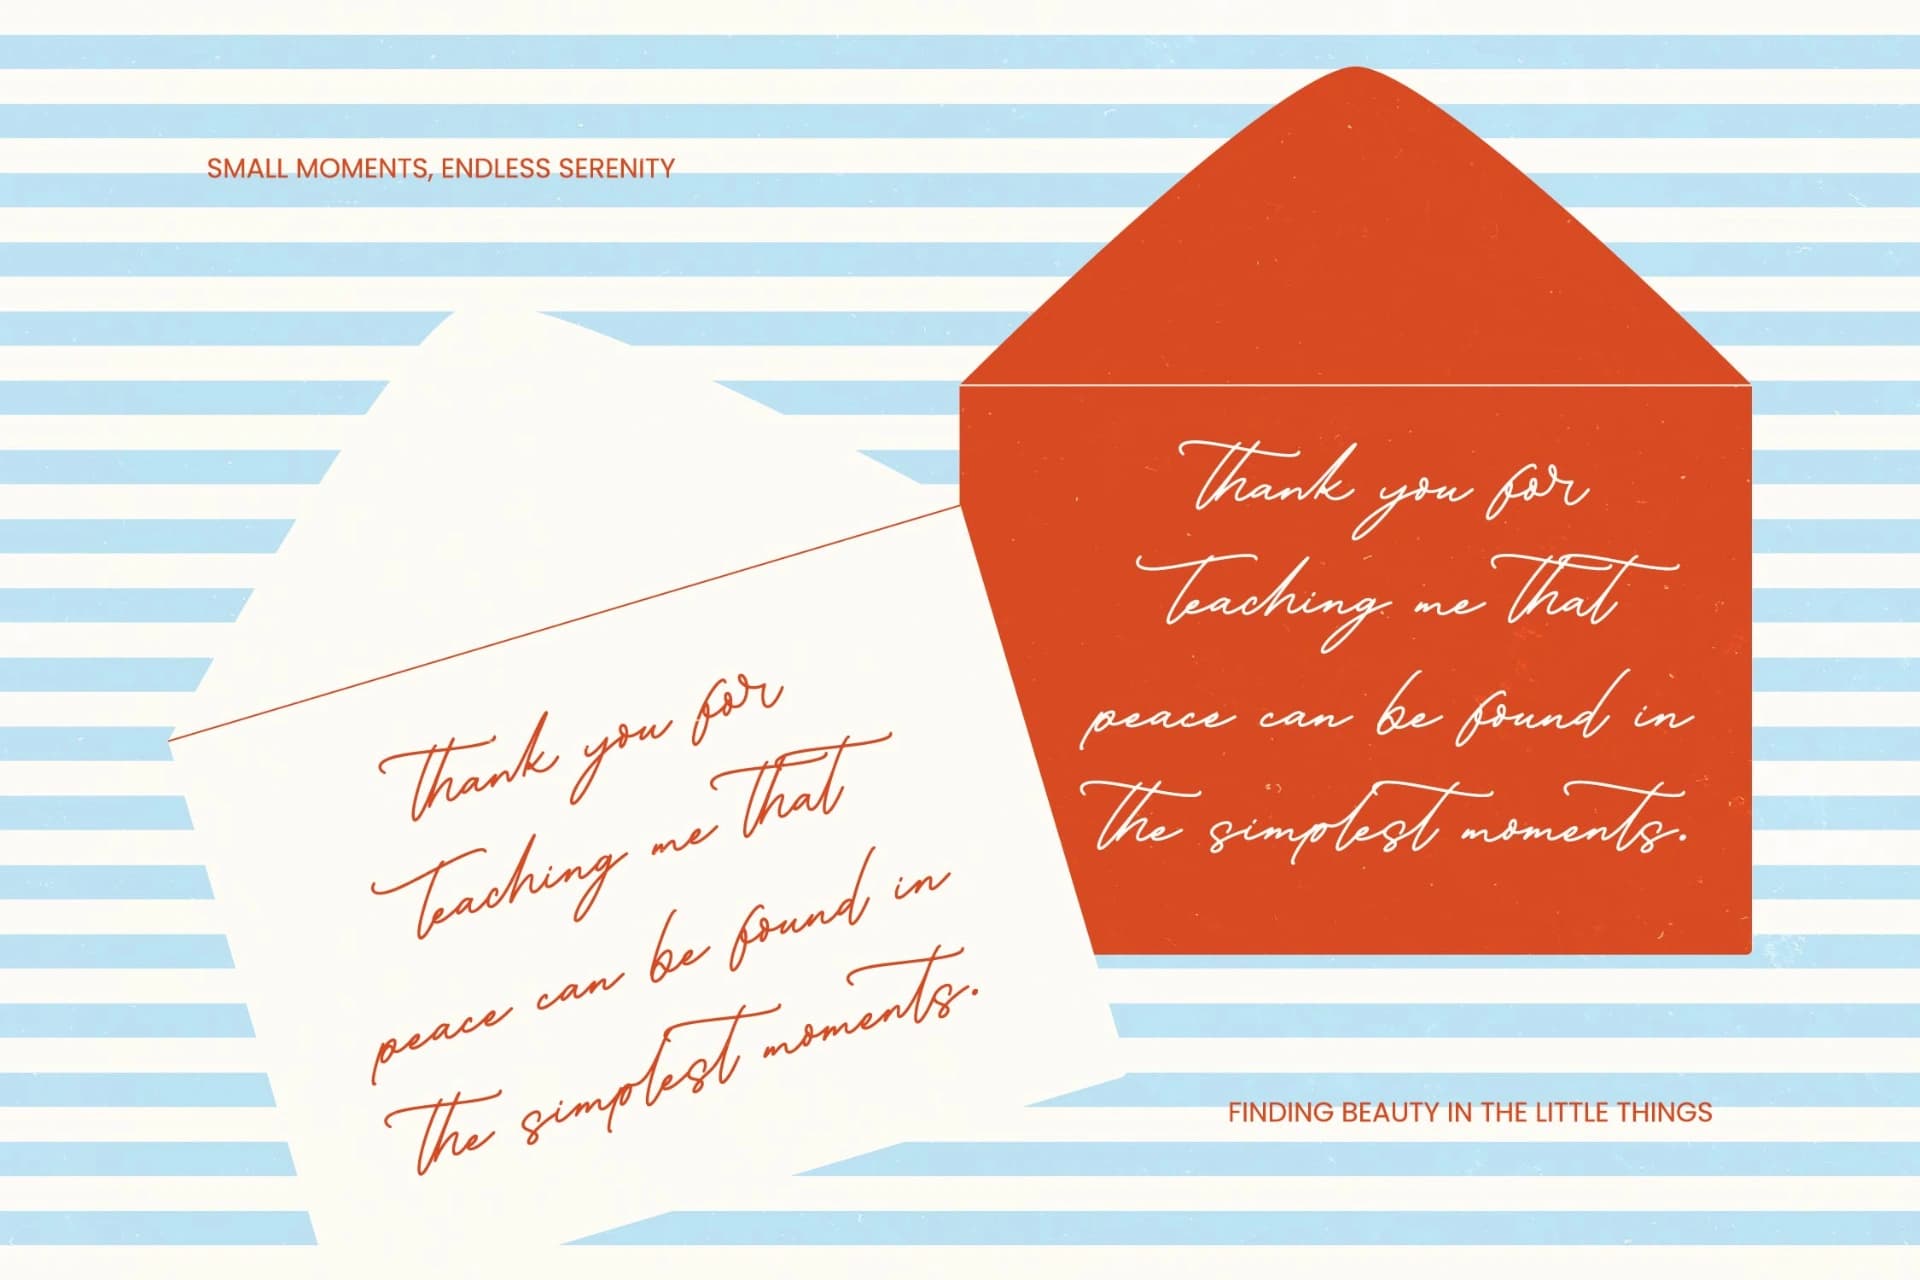 SMALL MOMENTS, ENDLESS SERENITY
Thank you for
Teaching me that
peace can be found in
the simplest moments.
Thank you for
Teaching me that
peace can be found in
the simplest moments.
FINDING BEAUTY IN THE LITTLE THINGS